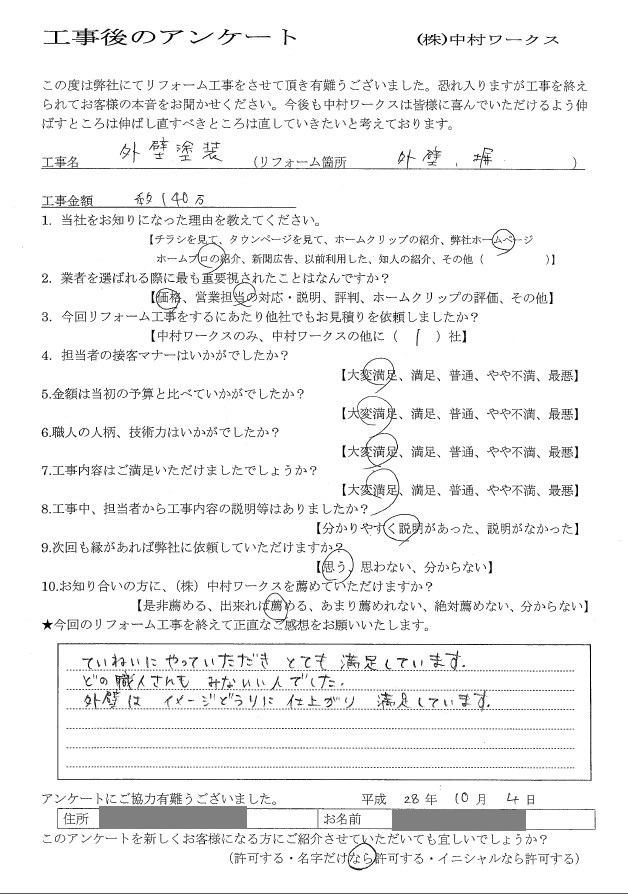 工事後のアンケート (株)中村ワークス
この度は弊社にてリフォーム工事をさせて頂き有難うございました。恐れ入りますが工事を終え
られてお客様の本音をお聞かせください。今後も中村ワークスは皆様に喜んでいただけるよう伸
ばすところは伸ばし直すべきところは直していきたいと考えております。
工事名 外壁塗装 (リフォーム箇所 外壁、塀 )
工事金額 約140万
1. 当社をお知りになった理由を教えてください。
【チラシを見て、タウンページを見て、ホームクリップの紹介、弊社ホームページ
ホームプロの紹介、新聞広告、以前利用した、知人の紹介、その他（ )】
2. 業者を選ばれる際に最も重要視されたことはなんですか？
【価格、営業担当の対応・説明、評判、ホームクリップの評価、その他】
3. 今回リフォーム工事をするにあたり他社でもお見積りを依頼しましたか？
【中村ワークスのみ、中村ワークスの他に（ 1 ）社】
4. 担当者の接客マナーはいかがでしたか？
【大変満足、満足、普通、やや不満、最悪】
5.金額は当初の予算と比べていかがでしたか？
【大変満足、満足、普通、やや不満、最悪】
6.職人の人柄、技術力はいかがでしたか？
【大変満足、満足、普通、やや不満、最悪】
7.工事内容はご満足いただけましたでしょうか？
【大変満足、満足、普通、やや不満、最悪】
8.工事中、担当者から工事内容の説明等はありましたか？
【分かりやすく説明があった、説明がなかった】
9.次回も縁があれば弊社に依頼していただけますか？
【思う、思わない、分からない】
10.お知り合いの方に、（株）中村ワークスを薦めていただけますか？
【是非薦める、出来れば薦める、あまり薦めれない、絶対薦めない、分からない】
★今回のリフォーム工事を終えて正直なご感想をお願いいたします。
ていねいにやっていただき とても 満足しています.
どの職人さんも みないい人でした.
外壁は イメージどうりに 仕上がり 満足しています.
アンケートにご協力有難うございました。 平成 28 年 10 月 4 日
住所 お名前
このアンケートを新しくお客様になる方にご紹介させていただいても宜しいでしょうか？
（許可する・名字だけなら許可する・イニシャルなら許可する）